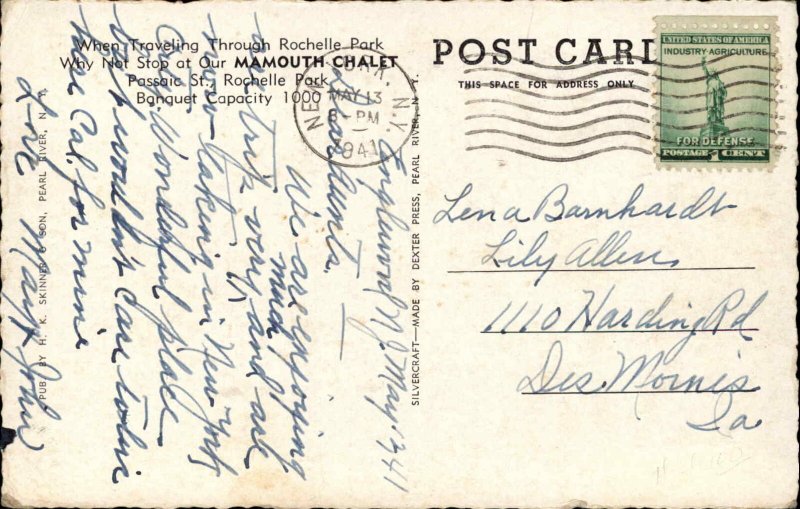 When Traveling Through Rochelle Park
Why Not Stop at Our MAMOUTH CHALET
Passaic St., Rochelle Park
Banquet Capacity 1000
POST CARD
THIS SPACE FOR ADDRESS ONLY
NEW YORK, N.Y.
MAY 13
8-PM
1941
UNITED STATES OF AMERICA
INDUSTRY-AGRICULTURE
FOR DEFENSE
POSTAGE 1 CENT
Englewood N.J. May 13/41
Dear Aunts.
We are enjoying
our trip very much and are
now taking in New York
a Wonderful place
but wouldn't care to live
here Cal, for mine
Love
Lena Barnhardt
Lily Allen
1110 Harding Rd
Des Moines
Ia
PUB. BY H. K. SKINNER & SON, PEARL RIVER, N. Y.
SILVERCRAFT—MADE BY DEXTER PRESS, PEARL RIVER, N. Y.